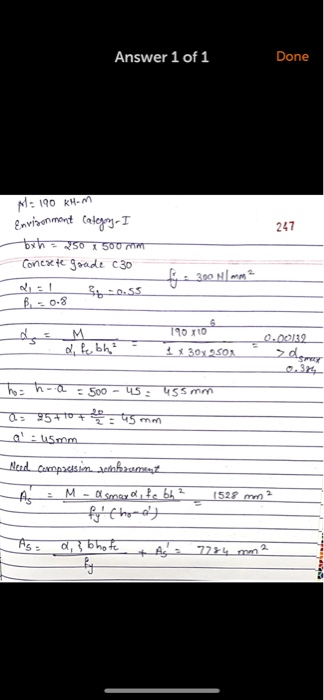 Answer 1 of 1
Done
M = 190 KH-m
Environment Category-I
247
b×h = 250 × 500 mm
Concrete grade C30
fy = 300 N/mm²
α₁ = 1 ξb = 0.55
β₁ = 0.8
αs = M / α₁ fc bh² = 190 × 10⁶ / 1 × 30 × 250 = 0.00139 > αsmax 0.384
h₀ = h - a = 500 - 45 = 455 mm
a = 25 + 10 + 20/2 = 45 mm
a' = 45mm
Need compression reinforcement
As' = M - αsmax α₁ fc bh² / fy' (h₀ - a') = 1528 mm²
As = α₁ ξ bh₀ fc / fy + As' = 7784 mm²